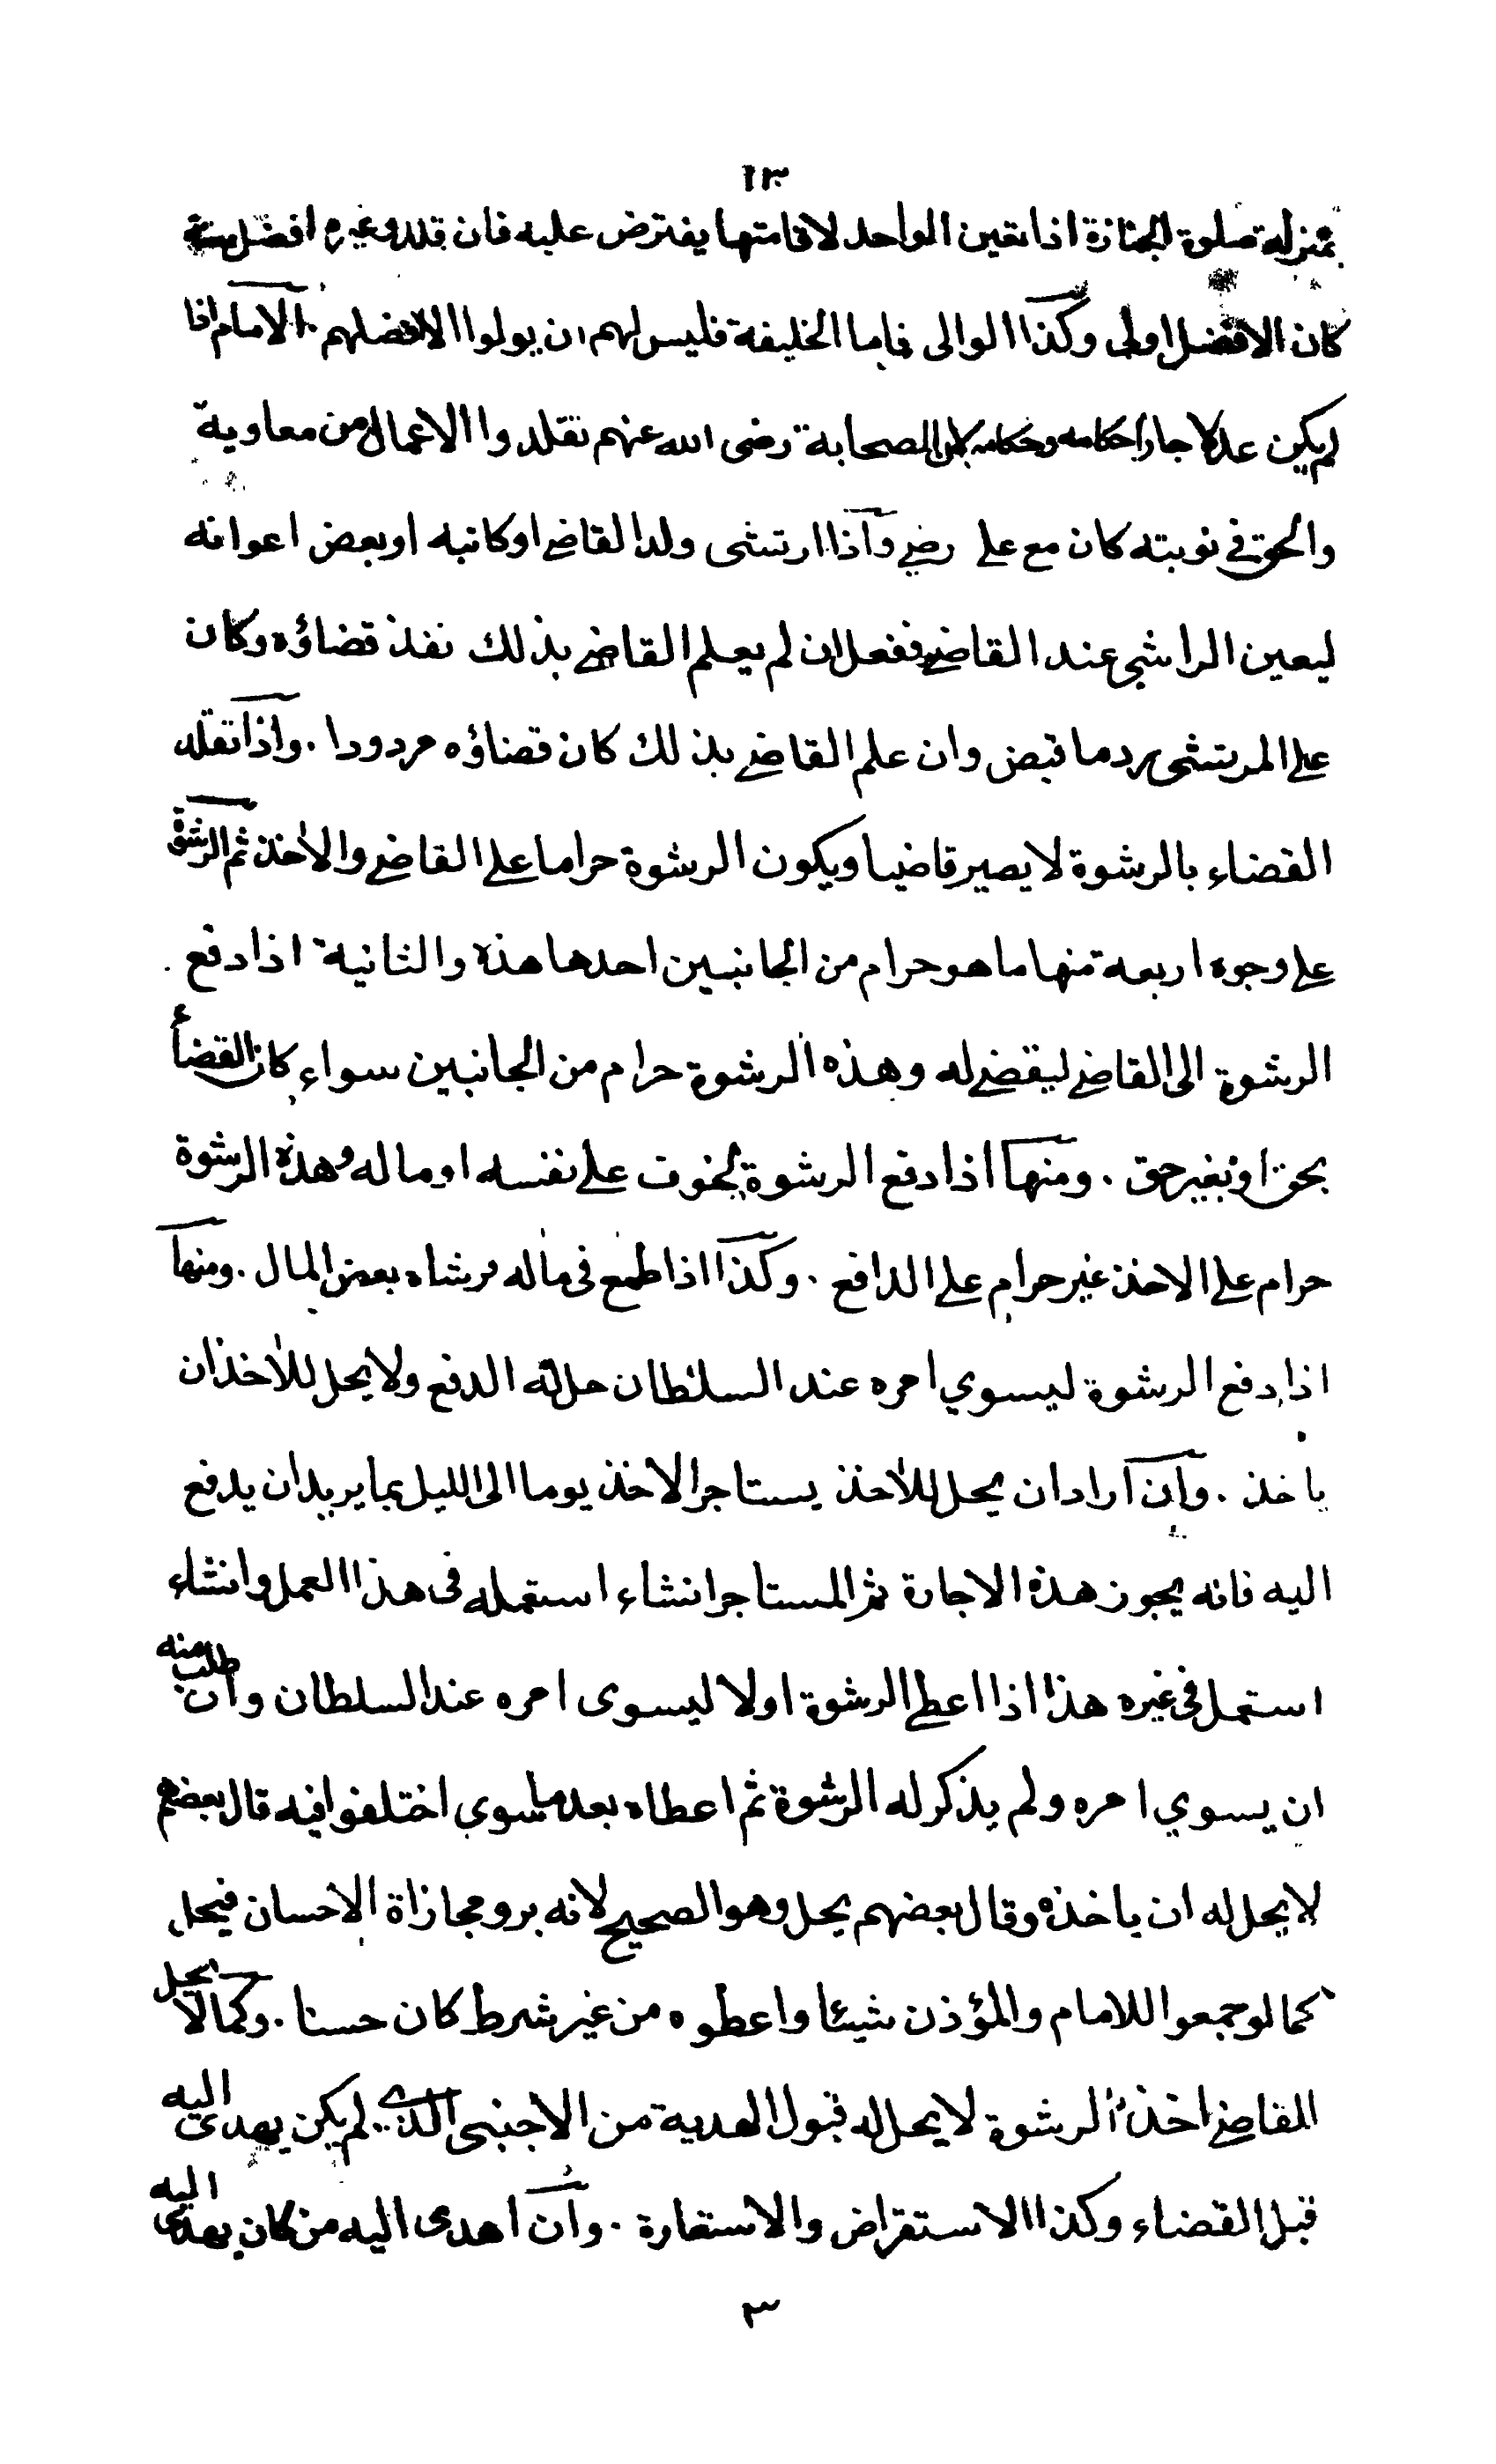 ١٣
بمنزلة صلوة الجنازة اذا تعين الواحد لاقامتها يفترض عليه فان قلد وغيره افضل منه
كان الافضل اولى وكذا الوالى فاما الخليفة فليس لهم ان يولوا الا افضلهم . الامام اذا
لم يكن عدلا جاز احكامه وحكامه لان الصحابة رضى الله عنهم تقلدوا الاعمال من معاوية
والحق فى نوبته كان مع على رضى واذا ارتشى ولد القاضى او كاتبه او بعض اعوانه
ليعين الراشى عند القاضى ففعل ان لم يعلم القاضى بذلك نفذ قضاؤه وكان
على المرتشى رد ما قبض وان علم القاضى بذلك كان قضاؤه مردودا . واذا تقلد
القضاء بالرشوة لا يصير قاضيا ويكون الرشوة حراما على القاضى والآخذ ثم الرشوة
على وجوه اربعة منها ما هو حرام من الجانبين احدها هذه والثانية اذا دفع
الرشوة الى القاضى ليقضى له وهذه الرشوة حرام من الجانبين سواء كان القضأ
بحق او بغير حق . ومنها اذا دفع الرشوة لخوف على نفسه او ماله وهذه الرشوة
حرام على الاخذ غير حرام على الدافع . وكذا اذا طمع فى ماله فرشاه بعض المال . ومنها
اذا دفع الرشوة ليسوي امره عند السلطان حل له الدفع ولا يحل للآخذ ان
ياخذ . وان اراد ان يحل للآخذ يستاجر الاخذ يوما الى الليل بما يريد ان يدفع
اليه فانه يجوز هذه الاجارة ثم المستاجر انشاء استعمله فى هذا العمل وانشاء
استعمل فى غيره هذا اذا اعطى الرشوة اولا ليسوى امره عند السلطان وان طلب منه
ان يسوي امره ولم يذكر له الرشوة ثم اعطاه بعد ما سوى اختلفوا فيه قال بعضهم
لا يحل له ان ياخذه وقال بعضهم يحل وهو الصحيح لانه بر ومجازاة الاحسان فيحل
كما لو جمعوا للامام والمؤذن شيئا واعطوه من غير شرط كان حسنا . وكما لا يحل
للقاضى اخذ الرشوة لا يحل له قبول الهدية من الاجنبى الذى لم يكن يهدى اليه
قبل القضاء وكذا الاستقراض والاستعارة . وان اهدى اليه من كان يهدى اليه
٣